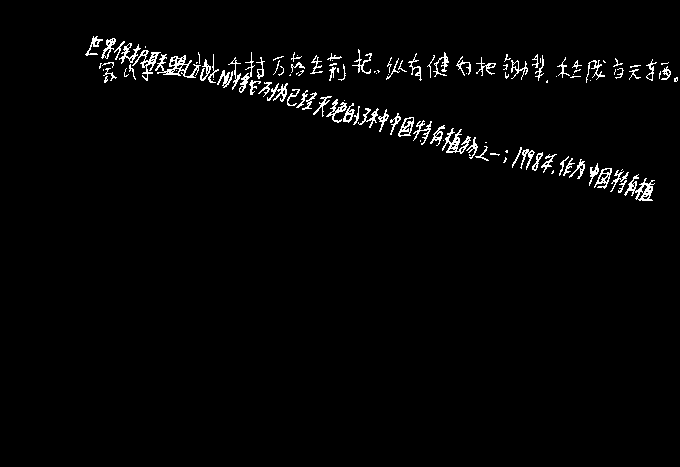 世界保护联盟(IUCN)将它列为已经灭绝的13种中国特有植物之一；1998年，作为中国特有植
千村万落生荆杞。纵有健妇把锄犁，禾生陇亩无东西。